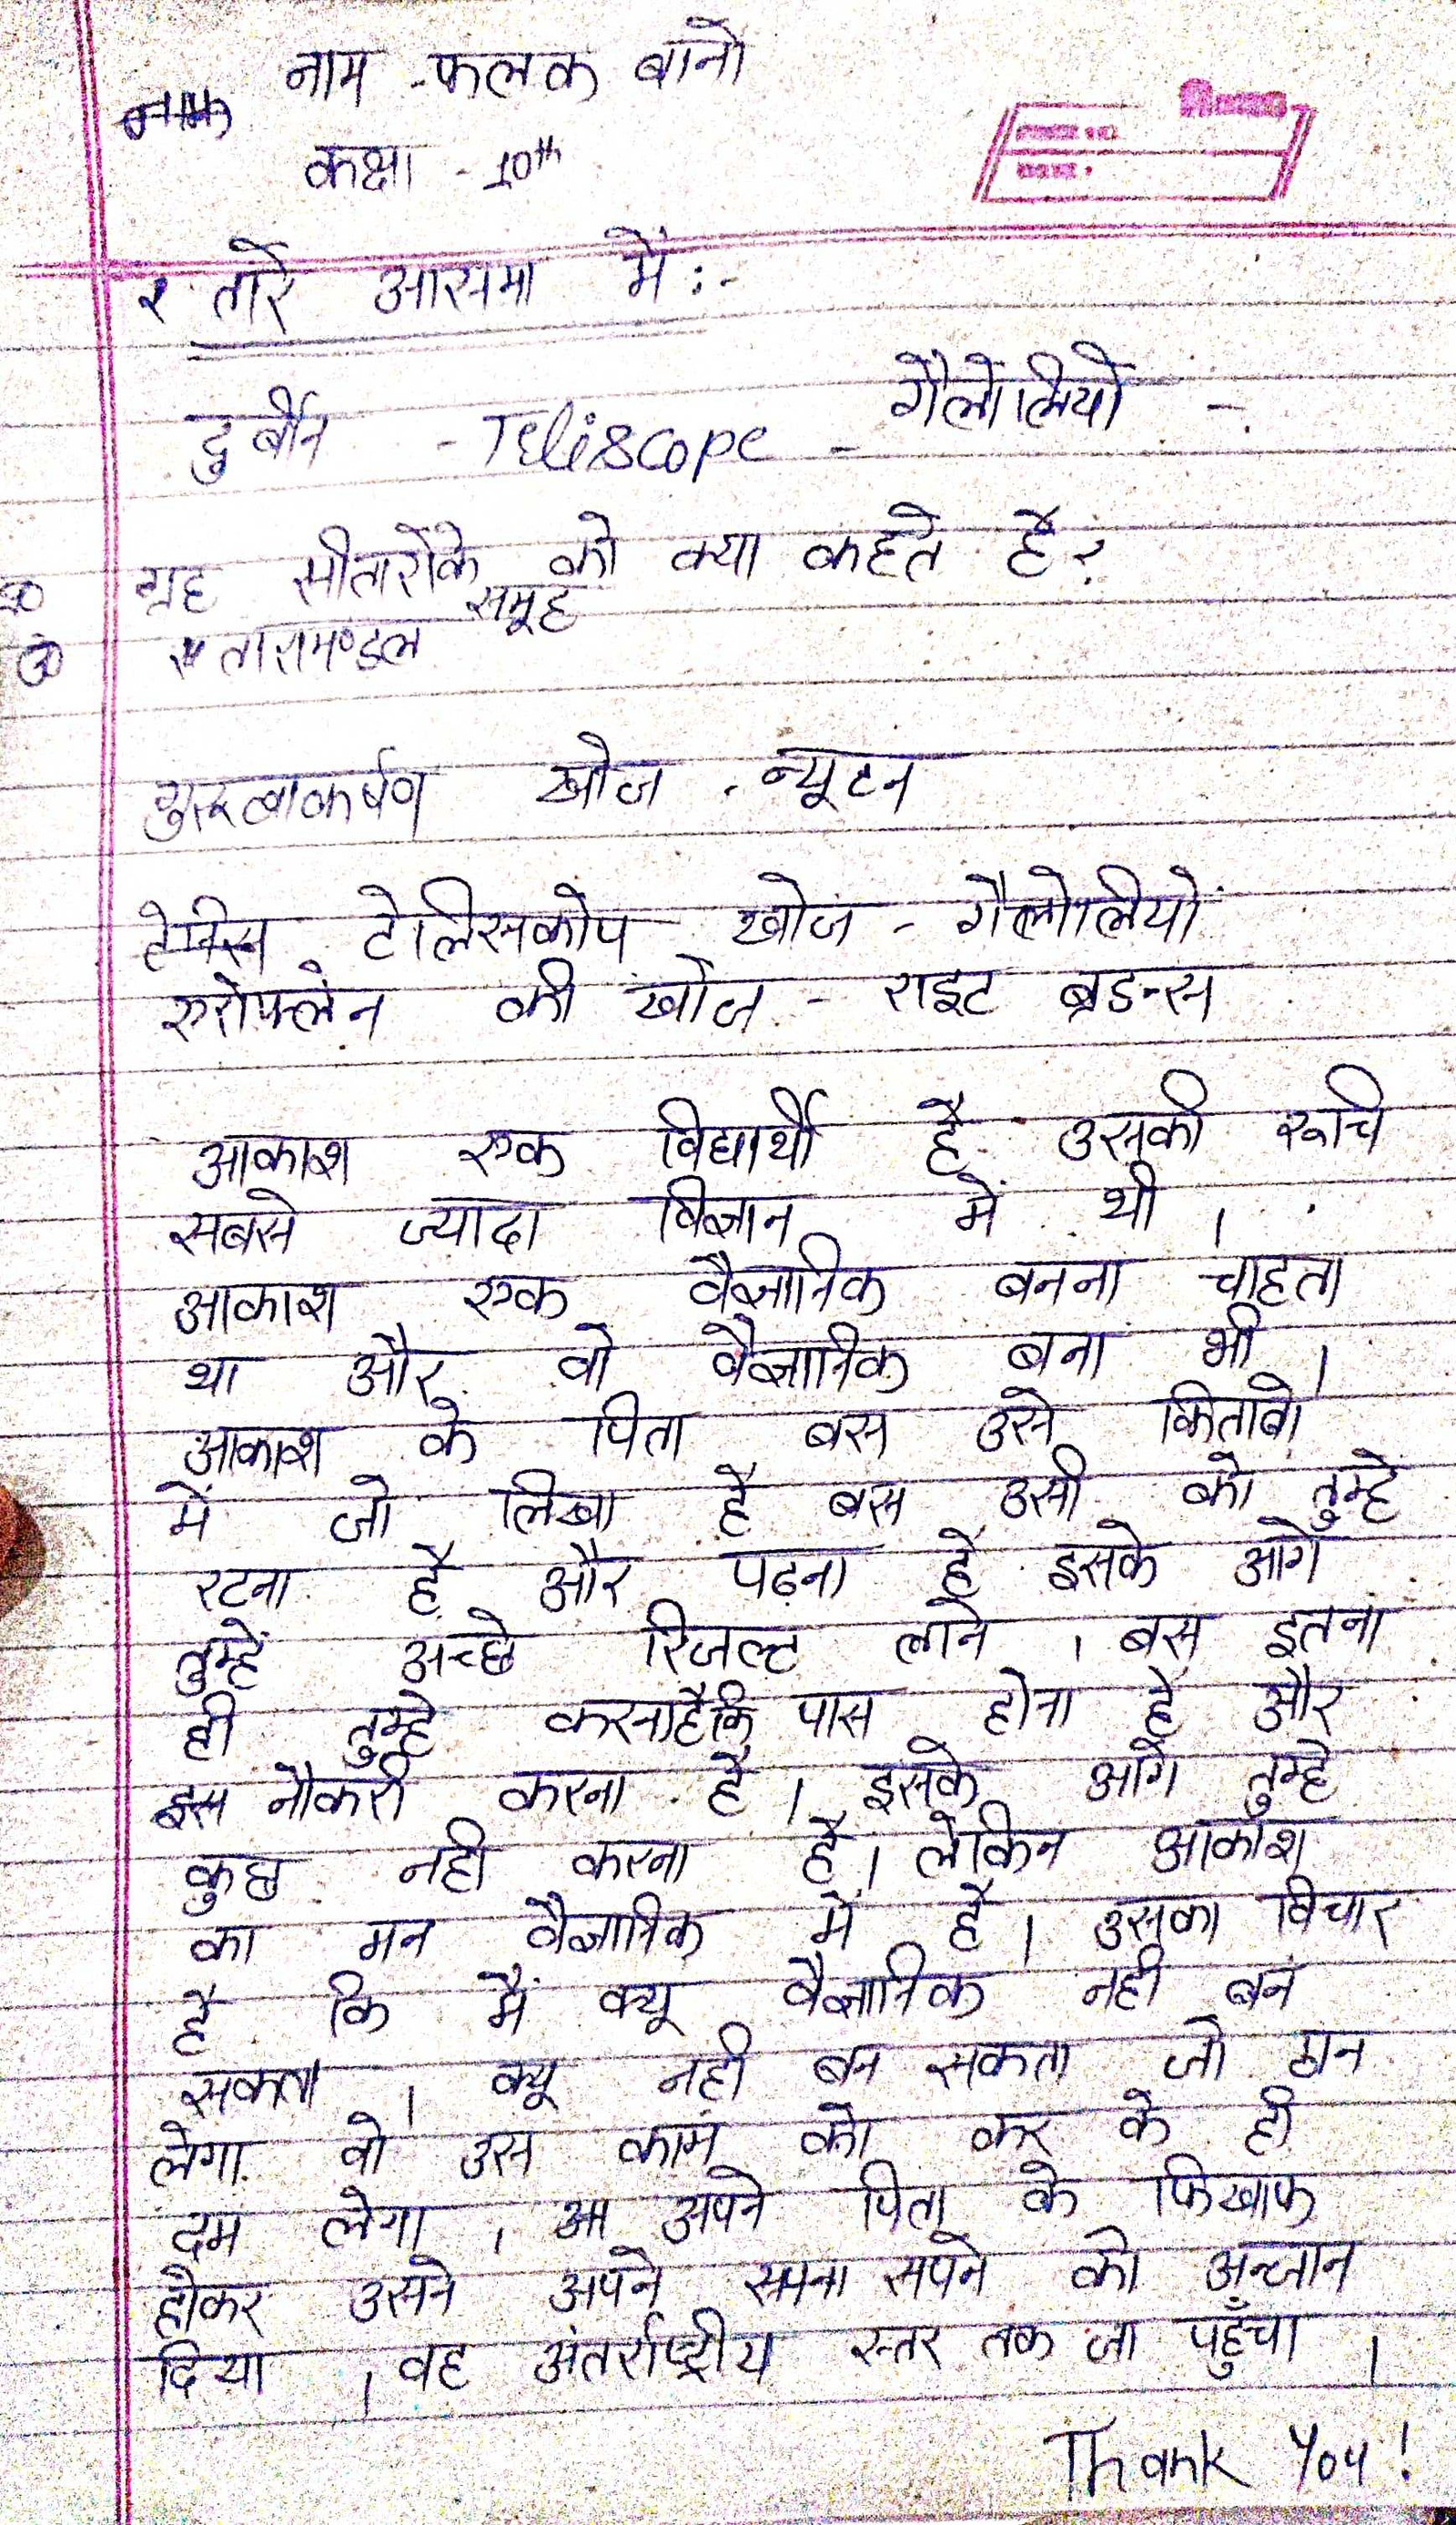 नाम - फलक बानो
कक्षा - 10th
तारे आसमा में :-
दुर्बीन - Teliscope - गैलेलियो -
ग्रह सीतारोके समूह को क्या कहते है?
तारामण्डल
गुरुत्वाकर्षण खोज - न्यूटन
टेलिसकोप खोज - गैलेलियो
एरोप्लेन की खोज - राइट ब्रडन्स
आकाश एक विद्यार्थी है उसकी रूचि
सबसे ज्यादा विज्ञान में थी ।
आकाश एक वैज्ञानिक बनना चाहता
था और वो वैज्ञानिक बना भी ।
आकाश के पिता बस उसे किताबो
में जो लिखा है बस उसी को तुम्हे
रटना है और पढ़ना है इसके आगे
तुम्हें अच्छे रिजल्ट लाने । बस इतना
ही तुम्हे करनाहैकि पास होना है और
नौकरी करना है । इसके आगे तुम्हे
कुछ नही करना है। लेकिन आकाश
का मन वैज्ञानिक में है । उसका विचार
है कि मैं क्यू वैज्ञानिक नही बन
सकता । क्यू नही बन सकता जो ठान
लेगा वो उस काम को कर के ही
दम लेगा । अपने पिता के फिखाफ
होकर उसने अपने सपना सपने को अन्जान
दिया । वह अंतर्राष्ट्रीय स्तर तक जा पहुँचा ।
Thank You !